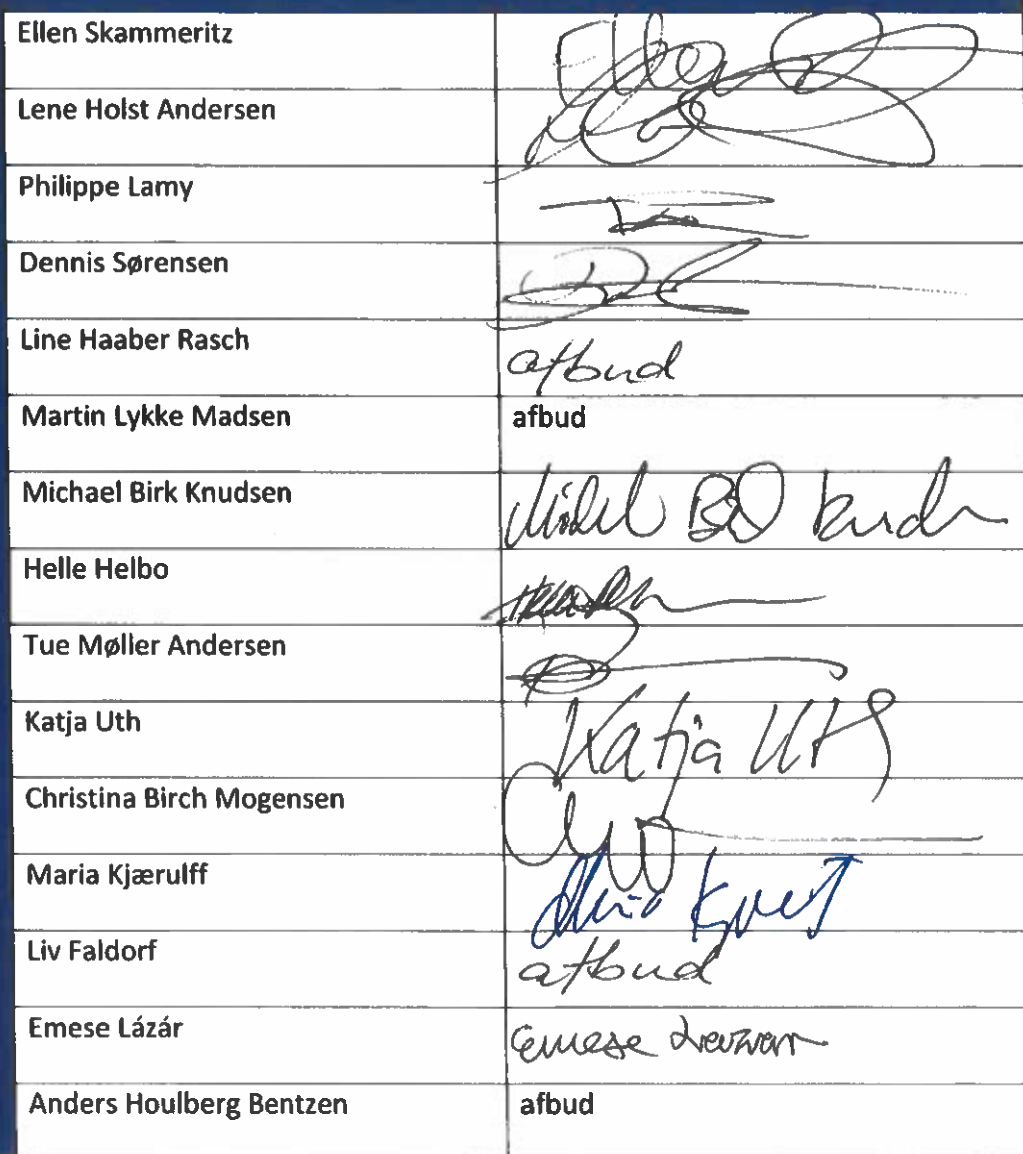 Ellen Skammeritz
Lene Holst Andersen
Philippe Lamy
Dennis Sørensen
Line Haaber Rasch afbud
Martin Lykke Madsen afbud
Michael Birk Knudsen
Helle Helbo
Tue Møller Andersen
Katja Uth Katja Uth
Christina Birch Mogensen
Maria Kjærulff
Liv Faldorf afbud
Emese Lázár Emese
Anders Houlberg Bentzen afbud